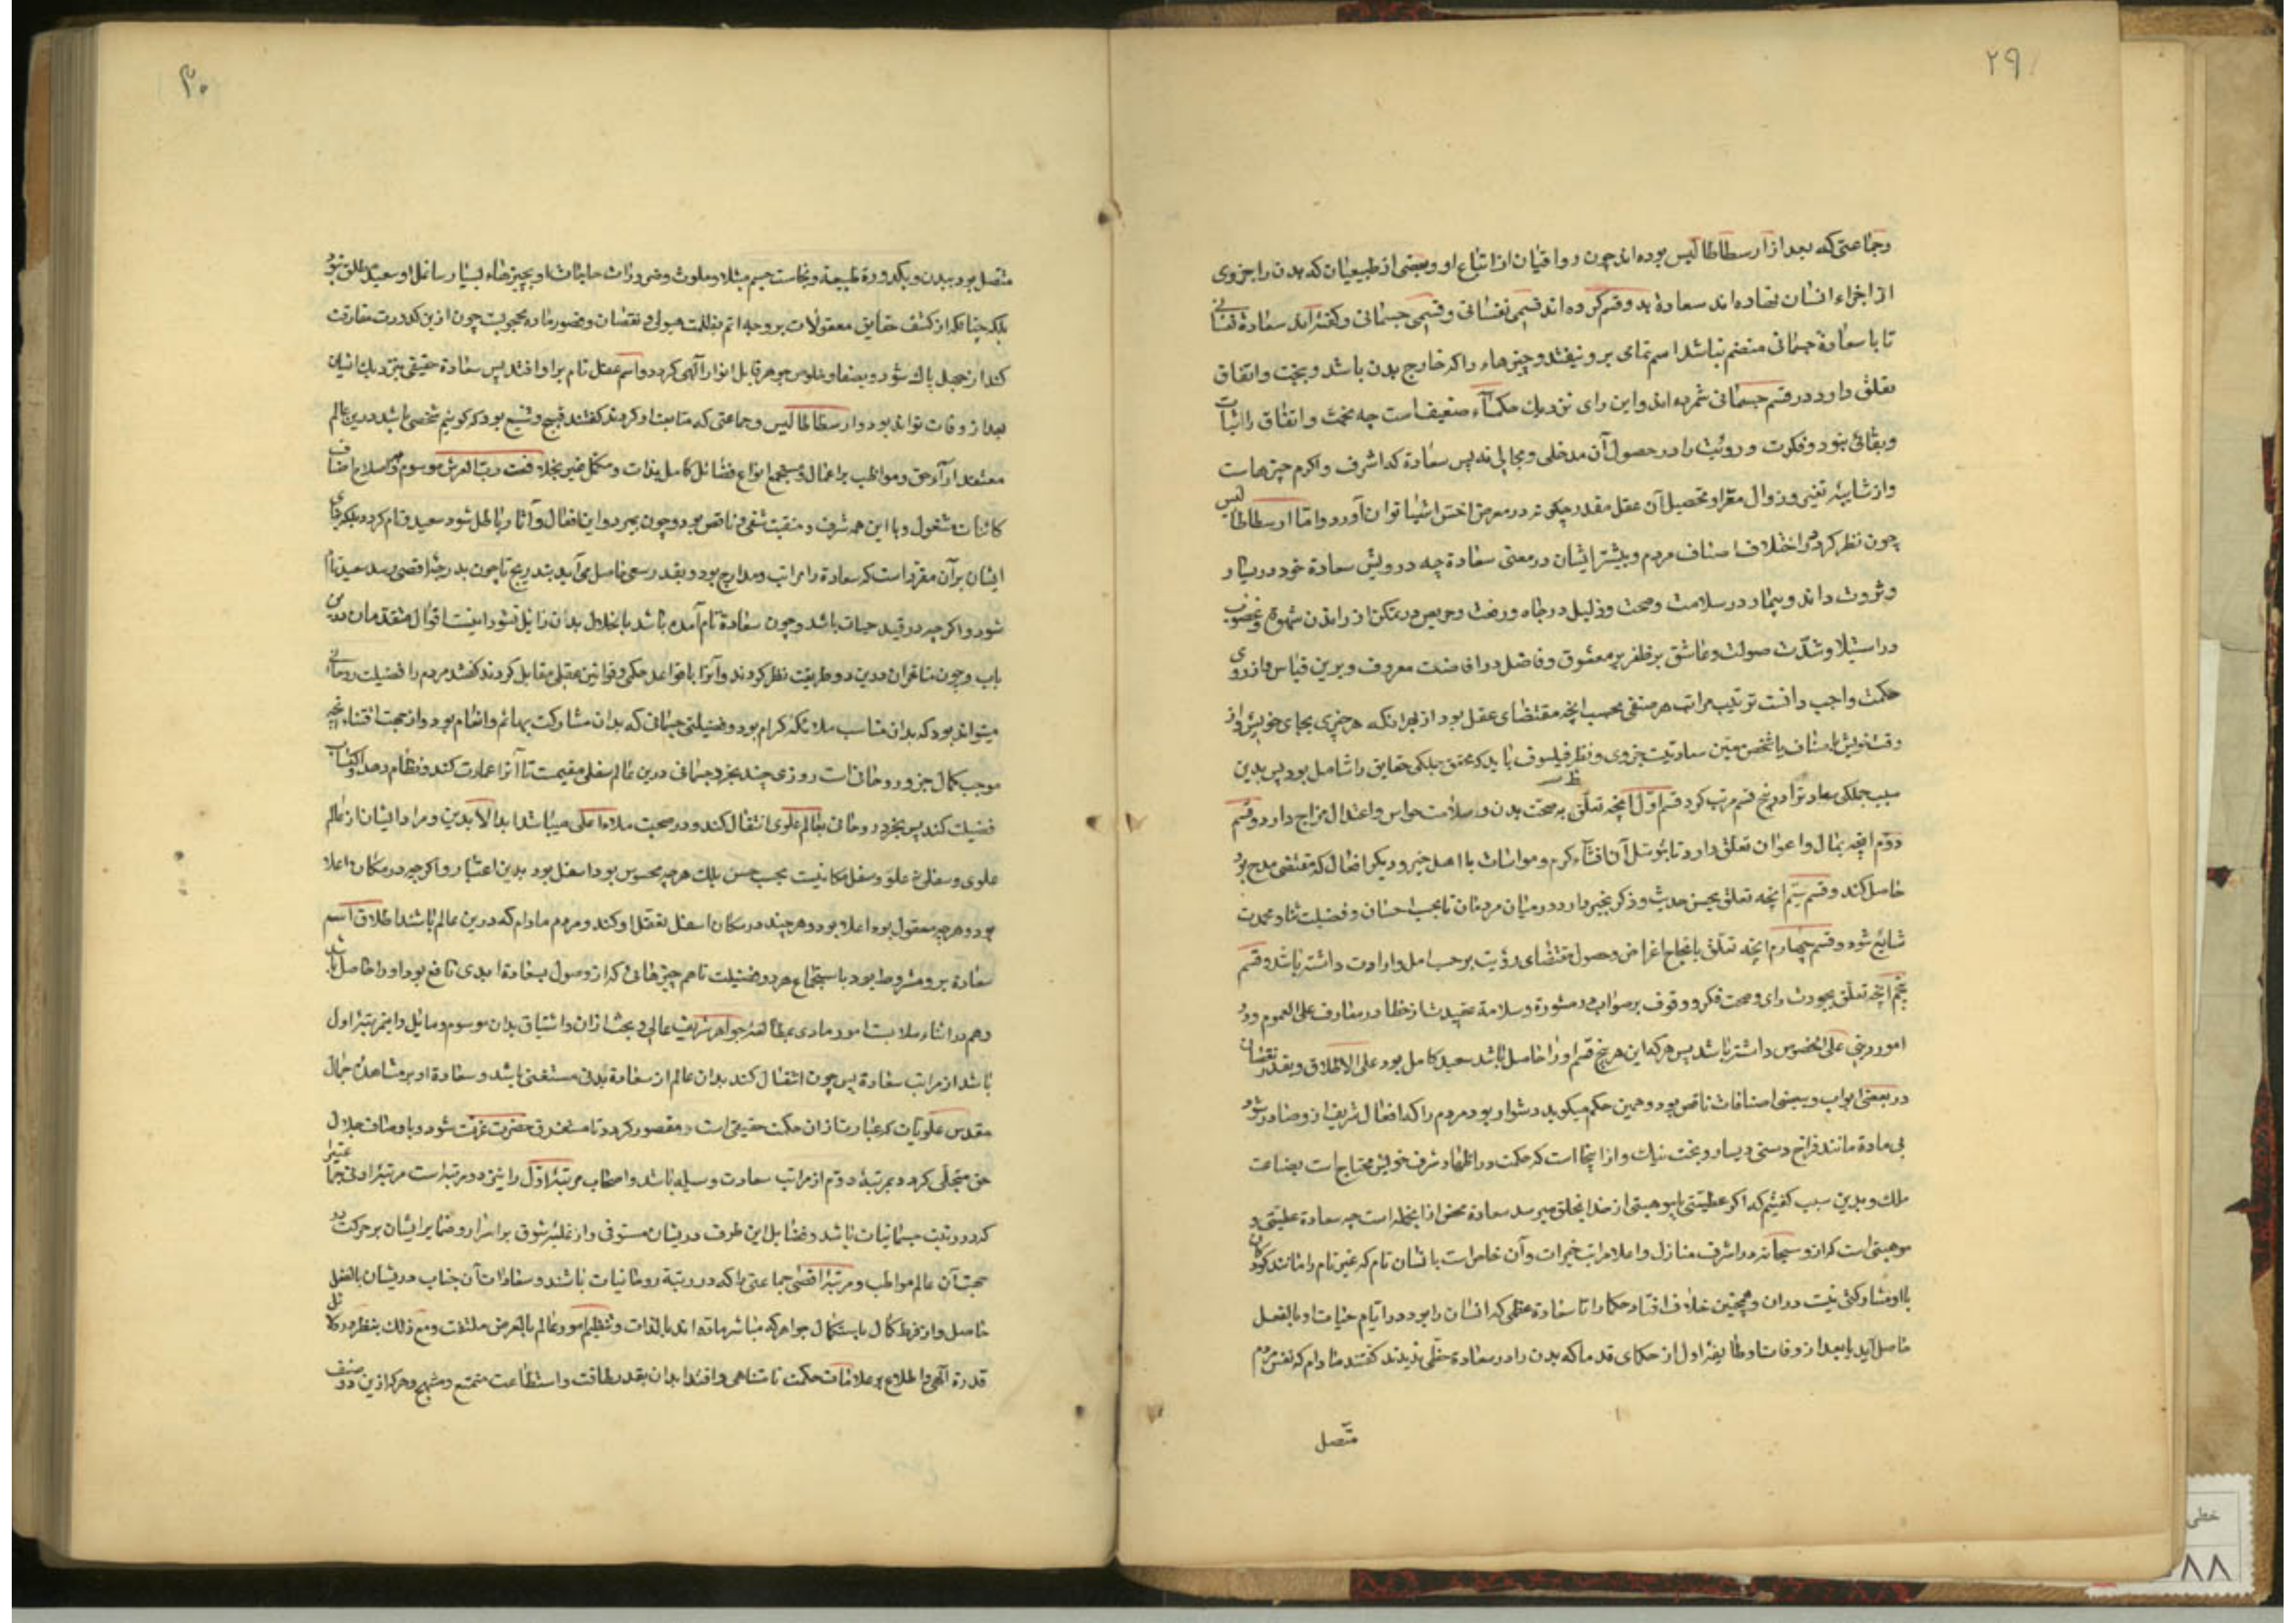 ۲۹
وجماعتی که بعد از ارسطاطالیس بوده‌اند چون رواقیان از اتباع او و بعضی از طبیعیان که بدن را جزوی
از اجزاء انسان نهاده‌اند سعادة بدو قسم کرده‌اند قسمی نفسانی و قسمی جسمانی و گفته‌اند سعادة نفسانی
تا با سعادة جسمانی منضم نباشد اسم تمامی برو نیفتد و چیزهاء را که خارج بدن باشد و ببخت و اتفاق
تعلق دارد در قسم جسمانی شمرده‌اند و این رای نزدیک حکماء ضعیف است چه بخت و اتفاق را ثبات
و بقائی نبود و فکرت و رویت را در حصول آن مدخلی و مجالی نه پس سعادة که اشرف و اکرم چیزهاست
و از شایبه تغیر و زوال معرا و تحصیل آن عقل مقدر چگونه در معرض اخس اشیا توان آورد و اما ارسطاطالیس
چون نظر کرد و اختلاف اصناف مردم و بیشتر ایشان در معنی سعادة چه درویش سعادة خود در یسار
و ثروت داند و بیمار در سلامت و صحت و ذلیل در جاه و رفعت و حریص در تمکن از راندن شهوة و غضوب
در استیلا و شدت صولت و عاشق بر ظفر بر معشوق و فاضل در افاضت معروف و برین قیاس و از روی
حکمت واجب دانست ترتیب مراتب هر صنفی بحسب آنچه مقتضای عقل بود از بهر آنکه هر چیزی بجای خویش و از
وقت خویش باضاف با شخص معین سعادتیست جزوی و نظر فیلسوف باید که بحقق جملگی حقایق را شامل بود پس بدین
سبب جملگی سعادتها در پنج قسم مرتب کرد قسم اول آنچه تعلق به صحت بدن و سلامت حواس و اعتدال مزاج دارد و قسم
دوم آنچه بمال و اعوان تعلق دارد تا بتوسل آن افشاء کرم و مواسات با اهل خیر و دیگر افعال که مقتضی مدح بود
حاصل کند و قسم سیم آنچه تعلق بحسن حدیث و ذکر بخیر دارد در میان مردمان تا بحسب احسان و فضیلت ثنا و محمدت
شایع شود و قسم چهارم آنچه تعلق بانجاح اغراض و حصول مقتضای رؤیت بر حسب امل و ارادت داشته باشد و قسم
پنجم آنچه تعلق بجودت رای و صحت فکر و وقوف بر صواب در مشورة و سلامة عقیدت از خطا در معارف علی العموم و در
امور دینی علی الخصوص داشته باشد پس هر که این هر پنج قسم او را حاصل باشد سعید کامل بود علی الاطلاق و بقدر نقصان
در بعضی ابواب و بعضی اضافات ناقص بود و همین حکیم میگوید دشوار بود مردم را که افعال شریف ازو صادر شود
بی ماده مانند فراخ دستی و یسار و بخت نیک و از اینجا است که حکمت در اظهار شرف خویش محتاج است بصناعت
ملک و بدین سبب گفتیم که اگر عطیتی یا موهبتی از خدا بخلق میرسد سعادة محض از انجمله است چه سعادة عطیتی و
موهبتی است که ازو سبحانه در اشرف منازل و اعلا مراتب خیرات و آن خاص است بانسان تام که غیر تام را مانند کودکان
با او مشارکتی نیست دران و همچنین خلاف افتاد حکما را تا سعادة عظمی که انسان را بود در ایام حیات او بالفعل
حاصل آید یا بعد از وفات او طایفه اول از حکمای قدما که بدن را در سعادة حظی ندیدند گفتند مادام که نفس مردم
متصل
۳۰
متصل بود ببدن و بکدورة طبیعة و نجاست جسم مبتلا و ملوث و ضرورات حاجات او بچیزهاء بسیار شاغل او سعید مطلق نبود
بلکه چنانکه از کشف حقایق معقولات بر وجه اتم بظلمت هیولی و نقصان و قصور ماده محجوبست چون ازین کدورت مفارقت
کند از جهل پاک شود و بصفا و خلوص جوهر قابل انوار الهی گردد و اسم عقل تام برو افتد پس سعادة حقیقی بنزدیک ایشان
بعد از وفات تواند بود و ارسطاطالیس و جماعتی که متابعت او کردند گفتند قبیح و شنیع بود که گوئیم شخصی باشد درین عالم
معتقد آراء حق و مواظب بر اعمال و مستجمع انواع فضائل کامل بذات و مکمل غیر بخلافت رب العرش موسوم و باصلاح اصناف
کائنات مشغول و با این همه شرف و منقبت شقی و ناقص بود و چون بمیرد و این افعال و آثار باطل شود سعید تام گردد بلکه رای
ایشان بر آن مقرر است که سعادة را مراتب و مدارج بود و بقدر سعی حاصل می‌آید بتدریج تا چون بدرجهٔ اقصی رسد سعید تام
شود و اگر چه در قید حیات باشد و چون سعادة تام آمده باشد بانحلال بدن زایل نشود اینست اقوال متقدمان درین
باب و چون متاخران درین دو طریقت نظر کردند و آنرا با قواعد حکمی و قوانین عقلی مقابل کردند گفتند مردم را فضیلت روحانی
میتواند بود که بدان مناسب ملائکهٔ کرام بود و فضیلتی جسمانی که بدان مشارکت بهائم و انعام بود و از جهت اقتناء آنچه
موجب کمال جزو روحانی است روزی چند بجزو جسمانی درین عالم سفلی مقیمست تا آنرا عمارت کند و نظام دهد و اکتساب
فضیلت کند پس بجزو روحانی بعالم علوی انتقال کند و در صحبت ملاء اعلی میباشد ابد الآبدین و مراد ایشان از عالم
علوی و سفلی نه علو و سفل مکانیست بحسب حس بلک هر چه محسوس بود اسفل بود بدین اعتبار و اگر چه در مکان اعلا
بود و هر چه معقول بود اعلا بود و هر چند در مکان اسفل تعقل او کند و مردم مادام که درین عالم باشد اطلاق اسم
سعادة برو مشروط بود باستجماع هر دو فضیلت تا هم چیزهائی که از وصول بسعادة ابدی نافع بود او را حاصل باشد
و هم در اثناء ملابست امور مادی بمطالعهٔ جواهر شریف عالی و بحث از آن و اشتیاق بدان موسوم و مایل و این مرتبهٔ اول
باشد از مراتب سعادة پس چون انتقال کند بدان عالم از سعادة بدنی مستغنی باشد و سعادة او بر مشاهدهٔ جمال
مقدس علویات که عبارت از آن حکمت حقیقی است مقصور گردد تا مستغرق حضرت عزت شود و باوصاف جلال
حق متحلی گردد و بمرتبهٔ دوم از مراتب سعادت وسیله باشد و اصحاب مرتبهٔ اول را نیز دو مرتبه است مرتبهٔ ادنی جماعتی را
که در رتبت جسمانیات باشد و فضایل این طرف در ایشان مستوفی و از غلبهٔ شوق بر اسرار و ضمایر ایشان بر حرکت
صحبت آن عالم مواظب و مرتبهٔ اقصی جماعتی را که در رتبة روحانیات باشند و سعادات آن جناب در ایشان بالفعل
حاصل و از فرط کمال باستکمال جواهر که مباشر ماده‌اند بالذات و تنظیم امور عالم بالعرض ملتفت و مع ذلک بنظر در دلائل
قدرة الهی و اطلاع بر علامات حکمت نامتناهی و اقتدا بدان بقدر طاقت و استطاعت متمتع و مبتهج و هر که ازین دو صنف
خطی
۸۸